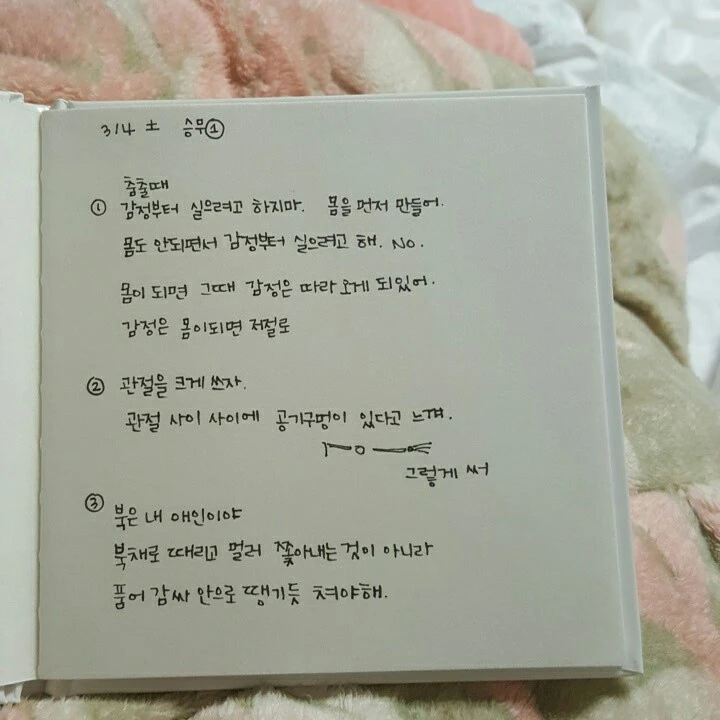 3/4 土 승무①
춤출때
① 감정부터 실으려고 하지마. 몸을 먼저 만들어.
몸도 안되면서 감정부터 실으려고 해. No.
몸이 되면 그때 감정은 따라오게 되있어.
감정은 몸이되면 저절로
② 관절을 크게 쓰자.
관절 사이 사이에 공기구멍이 있다고 느껴.
그렇게 써
③ 북은 내 애인이야
북채로 때리고 멀리 쫓아내는 것이 아니라
품어 감싸 안으로 땡기듯 쳐야해.